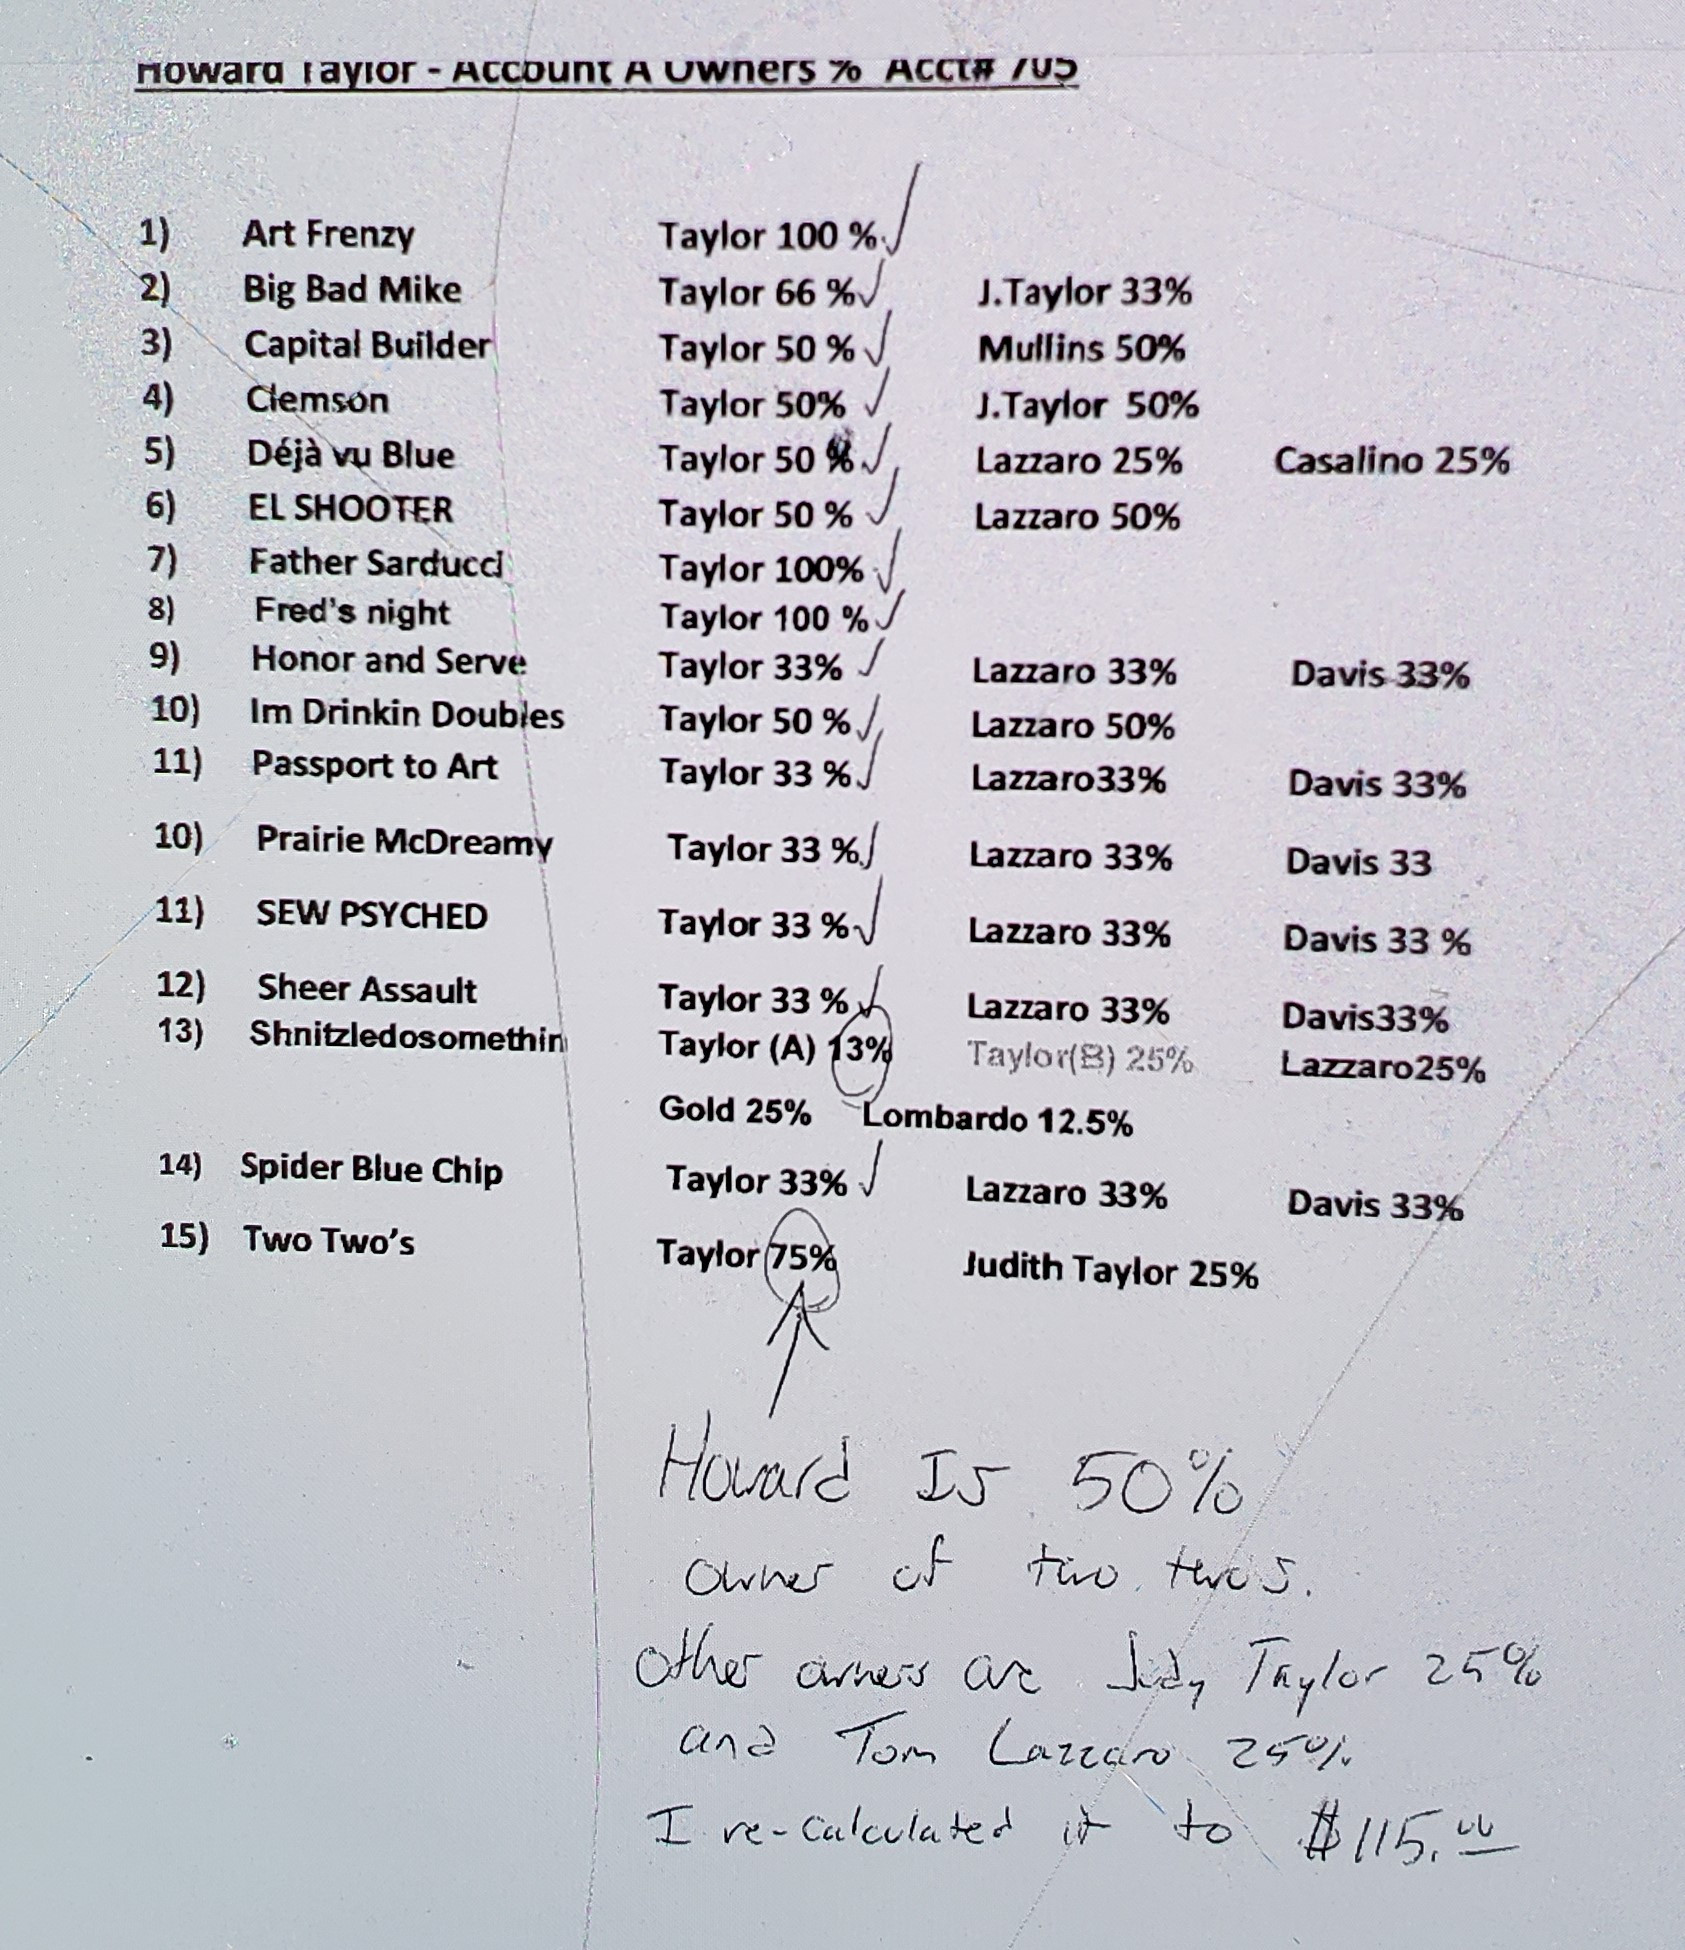 Howard Taylor - Account A Owners % Acct# 705
1) Art Frenzy Taylor 100 %
2) Big Bad Mike Taylor 66 % J.Taylor 33%
3) Capital Builder Taylor 50 % Mullins 50%
4) Clemson Taylor 50% J.Taylor 50%
5) Déjà vu Blue Taylor 50 % Lazzaro 25% Casalino 25%
6) EL SHOOTER Taylor 50 % Lazzaro 50%
7) Father Sarducci Taylor 100%
8) Fred's night Taylor 100 %
9) Honor and Serve Taylor 33% Lazzaro 33% Davis 33%
10) Im Drinkin Doubles Taylor 50 % Lazzaro 50%
11) Passport to Art Taylor 33 % Lazzaro33% Davis 33%
10) Prairie McDreamy Taylor 33 % Lazzaro 33% Davis 33
11) SEW PSYCHED Taylor 33 % Lazzaro 33% Davis 33 %
12) Sheer Assault Taylor 33 % Lazzaro 33% Davis33%
13) Shnitzledosomethin Taylor (A) 13% Taylor(B) 25% Lazzaro25%
Gold 25% Lombardo 12.5%
14) Spider Blue Chip Taylor 33% Lazzaro 33% Davis 33%
15) Two Two's Taylor 75% Judith Taylor 25%
Howard Is 50%
owner of two twos.
Other owners are Judy Taylor 25%
and Tom Lazzaro 25%
I re-calculated it to $115.00